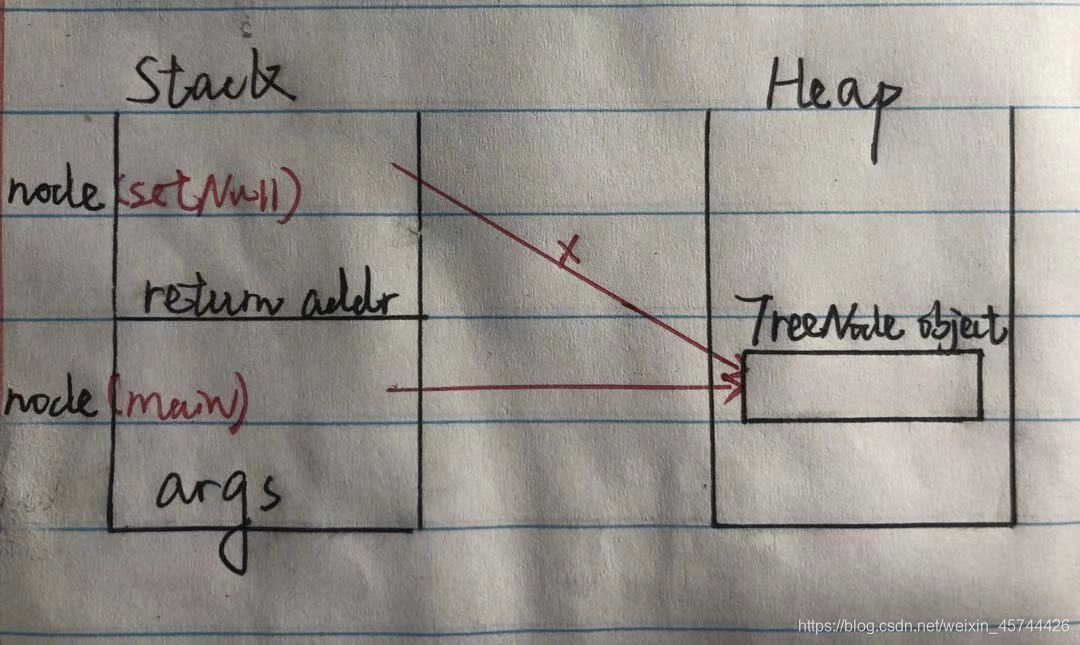 Stack
Heap
node (setNull)
return addr
TreeNode object
node (main)
args
https://blog.csdn.net/weixin_45744426